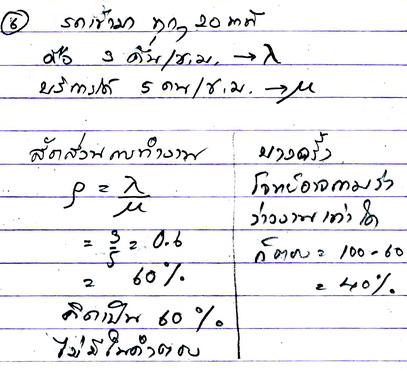 ⑥ รถเข้ามา ทุกๆ 20 นาที
คือ 3 คัน/ช.ม. → λ
บริการได้ 5 คน/ช.ม. → μ
สัดส่วนคนทำงาน
ρ = λ/μ
= 3/5 = 0.6
= 60%
คิดเป็น 60%
ไม่มีในคำตอบ
บางครั้ง
โจทย์อาจถามว่า
ว่างงานเท่าใด
ก็ตอบ = 100-60
= 40%